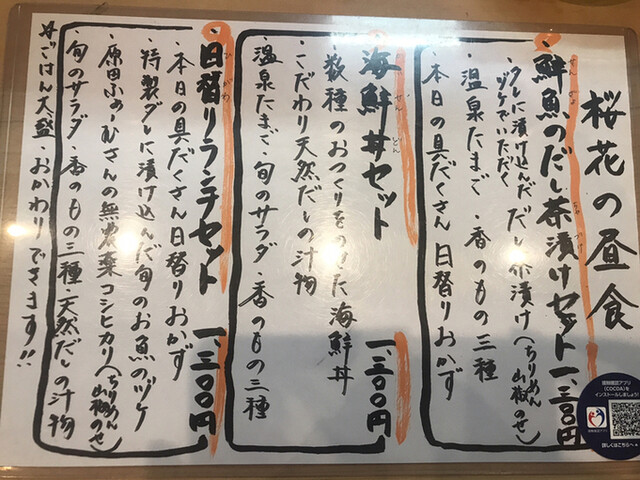 桜花の昼食
・鮮魚のだし茶漬けセット 一、三〇〇円
せん ぎょ ちゃ づ
タレに漬け込んだ だし茶漬け(ちりめん山椒のせ)
ヅケでいただく
・温泉たまご・香のもの三種
・本日の具だくさん日替りおかず
・海鮮丼セット 一、三〇〇円
かい せん どん
・数種のおつくりをのせた海鮮丼
・こだわり天然だしの汁物
・温泉たまご・旬のサラダ・香のもの三種
・日替りランチセット 一、三〇〇円
ひ が わ
・本日の具だくさん日替りおかず
・特製ダレに漬け込んだ旬のお魚のヅケ
・原田ふぁーむさんの無農薬コシヒカリ(ちりめん山椒のせ)
・旬のサラダ・香のもの三種・天然だしの汁物
#ごはん大盛 おかわりできます!!
接触確認アプリ
(COCOA)を
インストールしましょう!
接触確認アプリ
詳しくはこちらへ